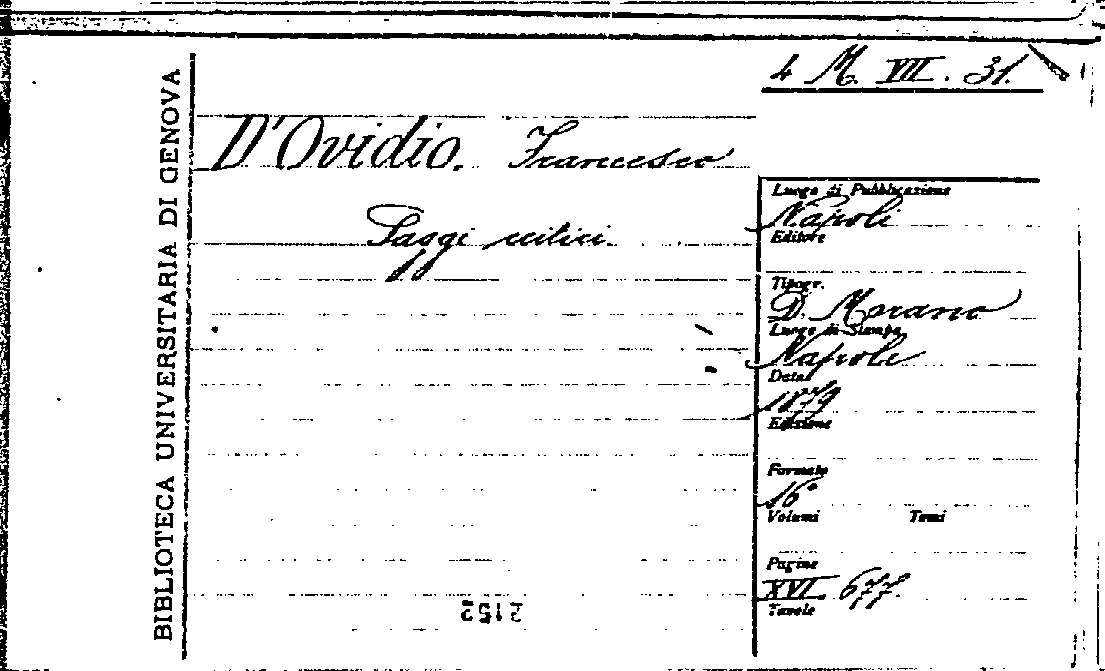 4 M. VII. 31.
BIBLIOTECA UNIVERSITARIA DI GENOVA
D'Ovidio. Francesco
Saggi critici.
Luogo di Pubblicazione
Napoli
Editore
Tipogr.
D. Morano
Luogo di Stampa
Napoli
Data
1879
Edizione
Formato
16°
Volumi Tomi
Pagine
XVI. 677.
Tavole
2152